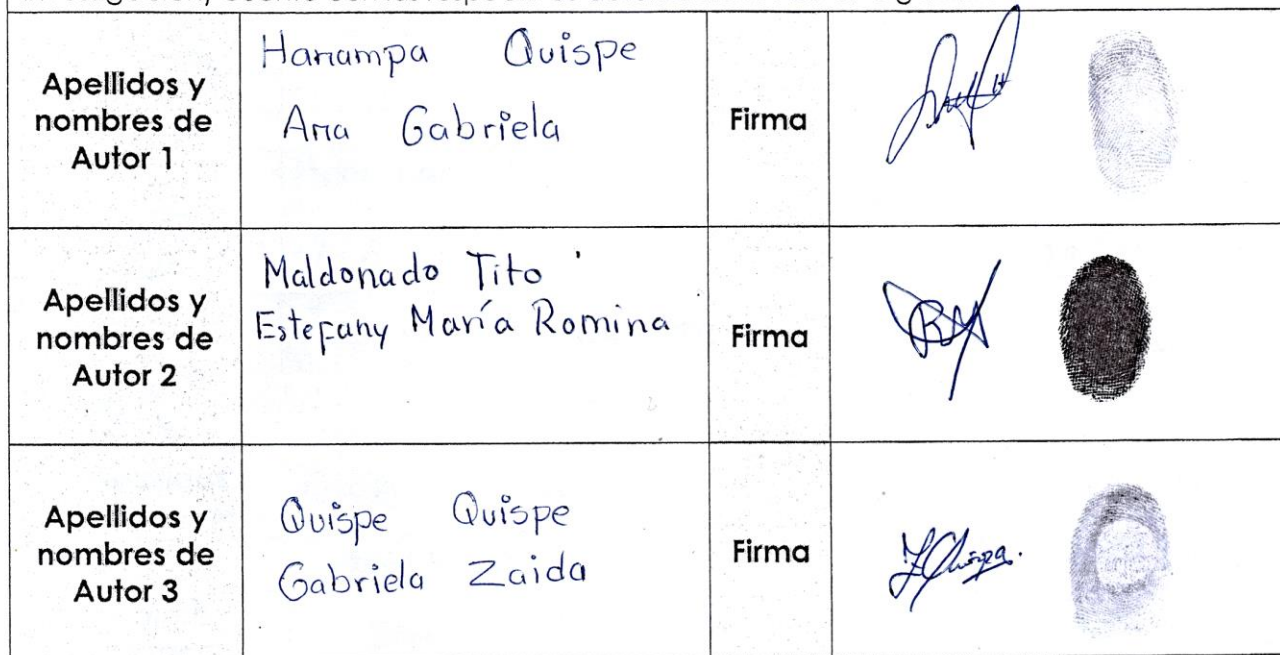 Apellidos y
nombres de
Autor 1
Hanampa Quispe
Ana Gabriela
Firma
Apellidos y
nombres de
Autor 2
Maldonado Tito
Estefany María Romina
Firma
Apellidos y
nombres de
Autor 3
Quispe Quispe
Gabriela Zaida
Firma